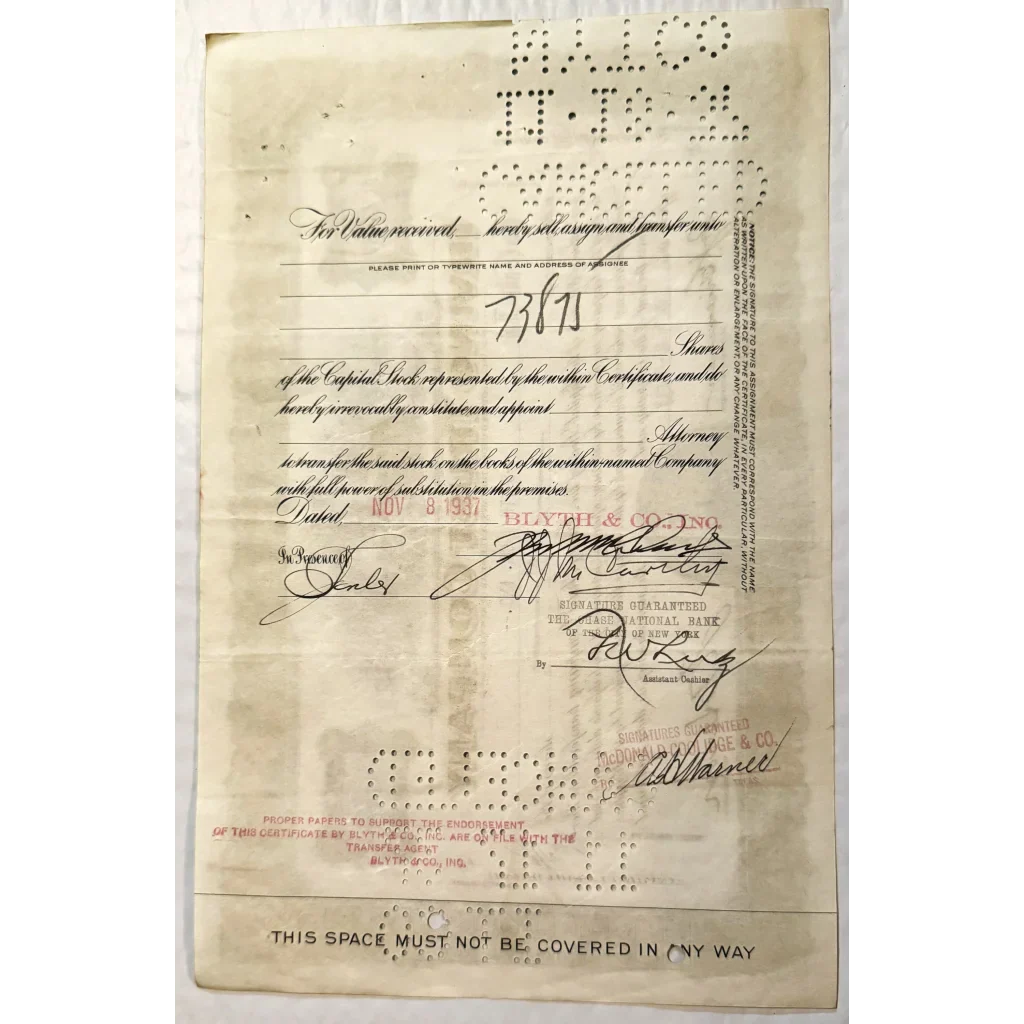 For Value received, hereby sell, assign and transfer unto
PLEASE PRINT OR TYPEWRITE NAME AND ADDRESS OF ASSIGNEE
73875
Shares
of the Capital Stock represented by the within Certificate, and do
hereby irrevocably constitute and appoint
Attorney
to transfer the said stock on the books of the within-named Company
with full power of substitution in the premises.
Dated, NOV 8 1937
BLYTH & CO., INC.
In Presence of
McCarthy
SIGNATURE GUARANTEED
THE CHASE NATIONAL BANK
OF THE CITY OF NEW YORK
By
Assistant Cashier
SIGNATURES GUARANTEED
McDONALD-COOLIDGE & CO.
Warner
PROPER PAPERS TO SUPPORT THE ENDORSEMENT
OF THIS CERTIFICATE BY BLYTH & CO., INC. ARE ON FILE WITH THE
TRANSFER AGENT
BLYTH & CO., INC.
THIS SPACE MUST NOT BE COVERED IN ANY WAY
NOTICE: THE SIGNATURE TO THIS ASSIGNMENT MUST CORRESPOND WITH THE NAME
AS WRITTEN UPON THE FACE OF THE CERTIFICATE, IN EVERY PARTICULAR, WITHOUT
ALTERATION OR ENLARGEMENT, OR ANY CHANGE WHATEVER.